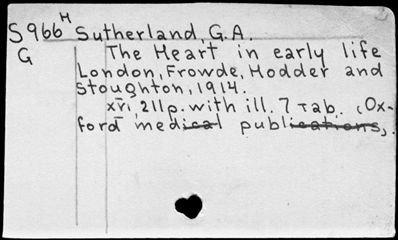 S966 H Sutherland, G.A.
G The Heart in early life
London, Frowde, Hodder and
Stoughton, 1914.
xvi, 211p. with ill. 7 Tab. (Ox-
ford medical publications,.